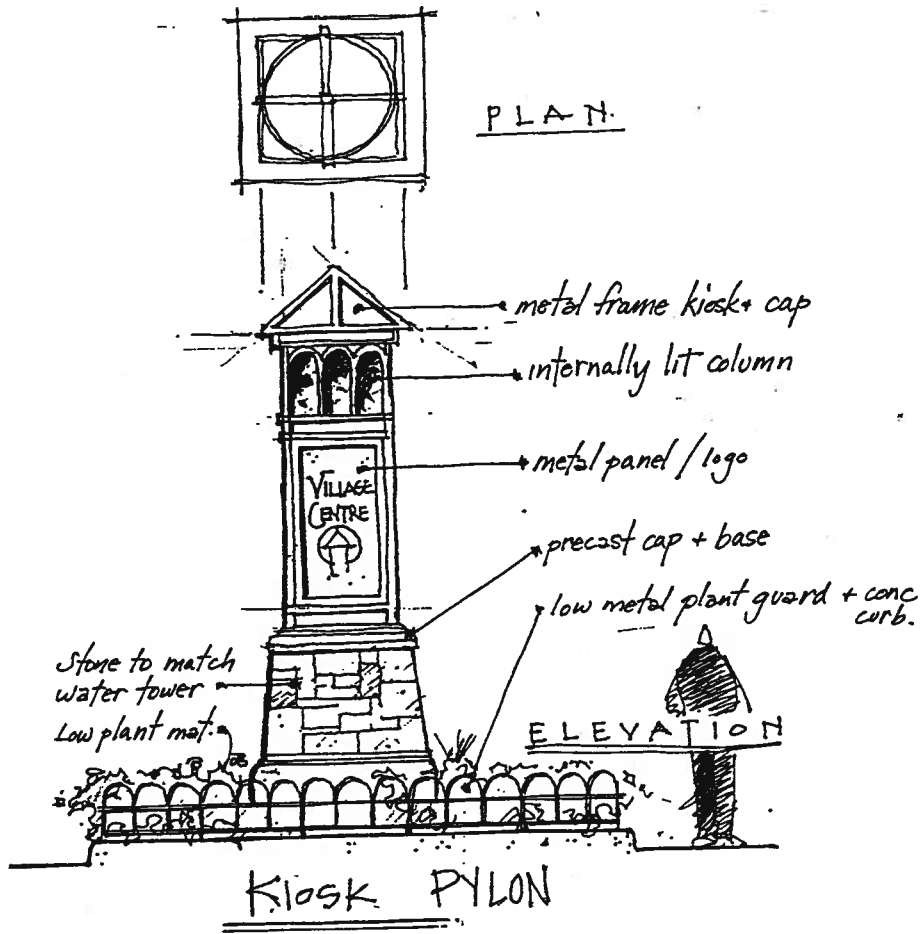 PLAN.
metal frame kiosk + cap
internally lit column
metal panel / logo
VILLAGE
CENTRE
precast cap + base
low metal plant guard + conc
curb.
Stone to match
water tower
Low plant mat.
ELEVATION
Kiosk PYLON